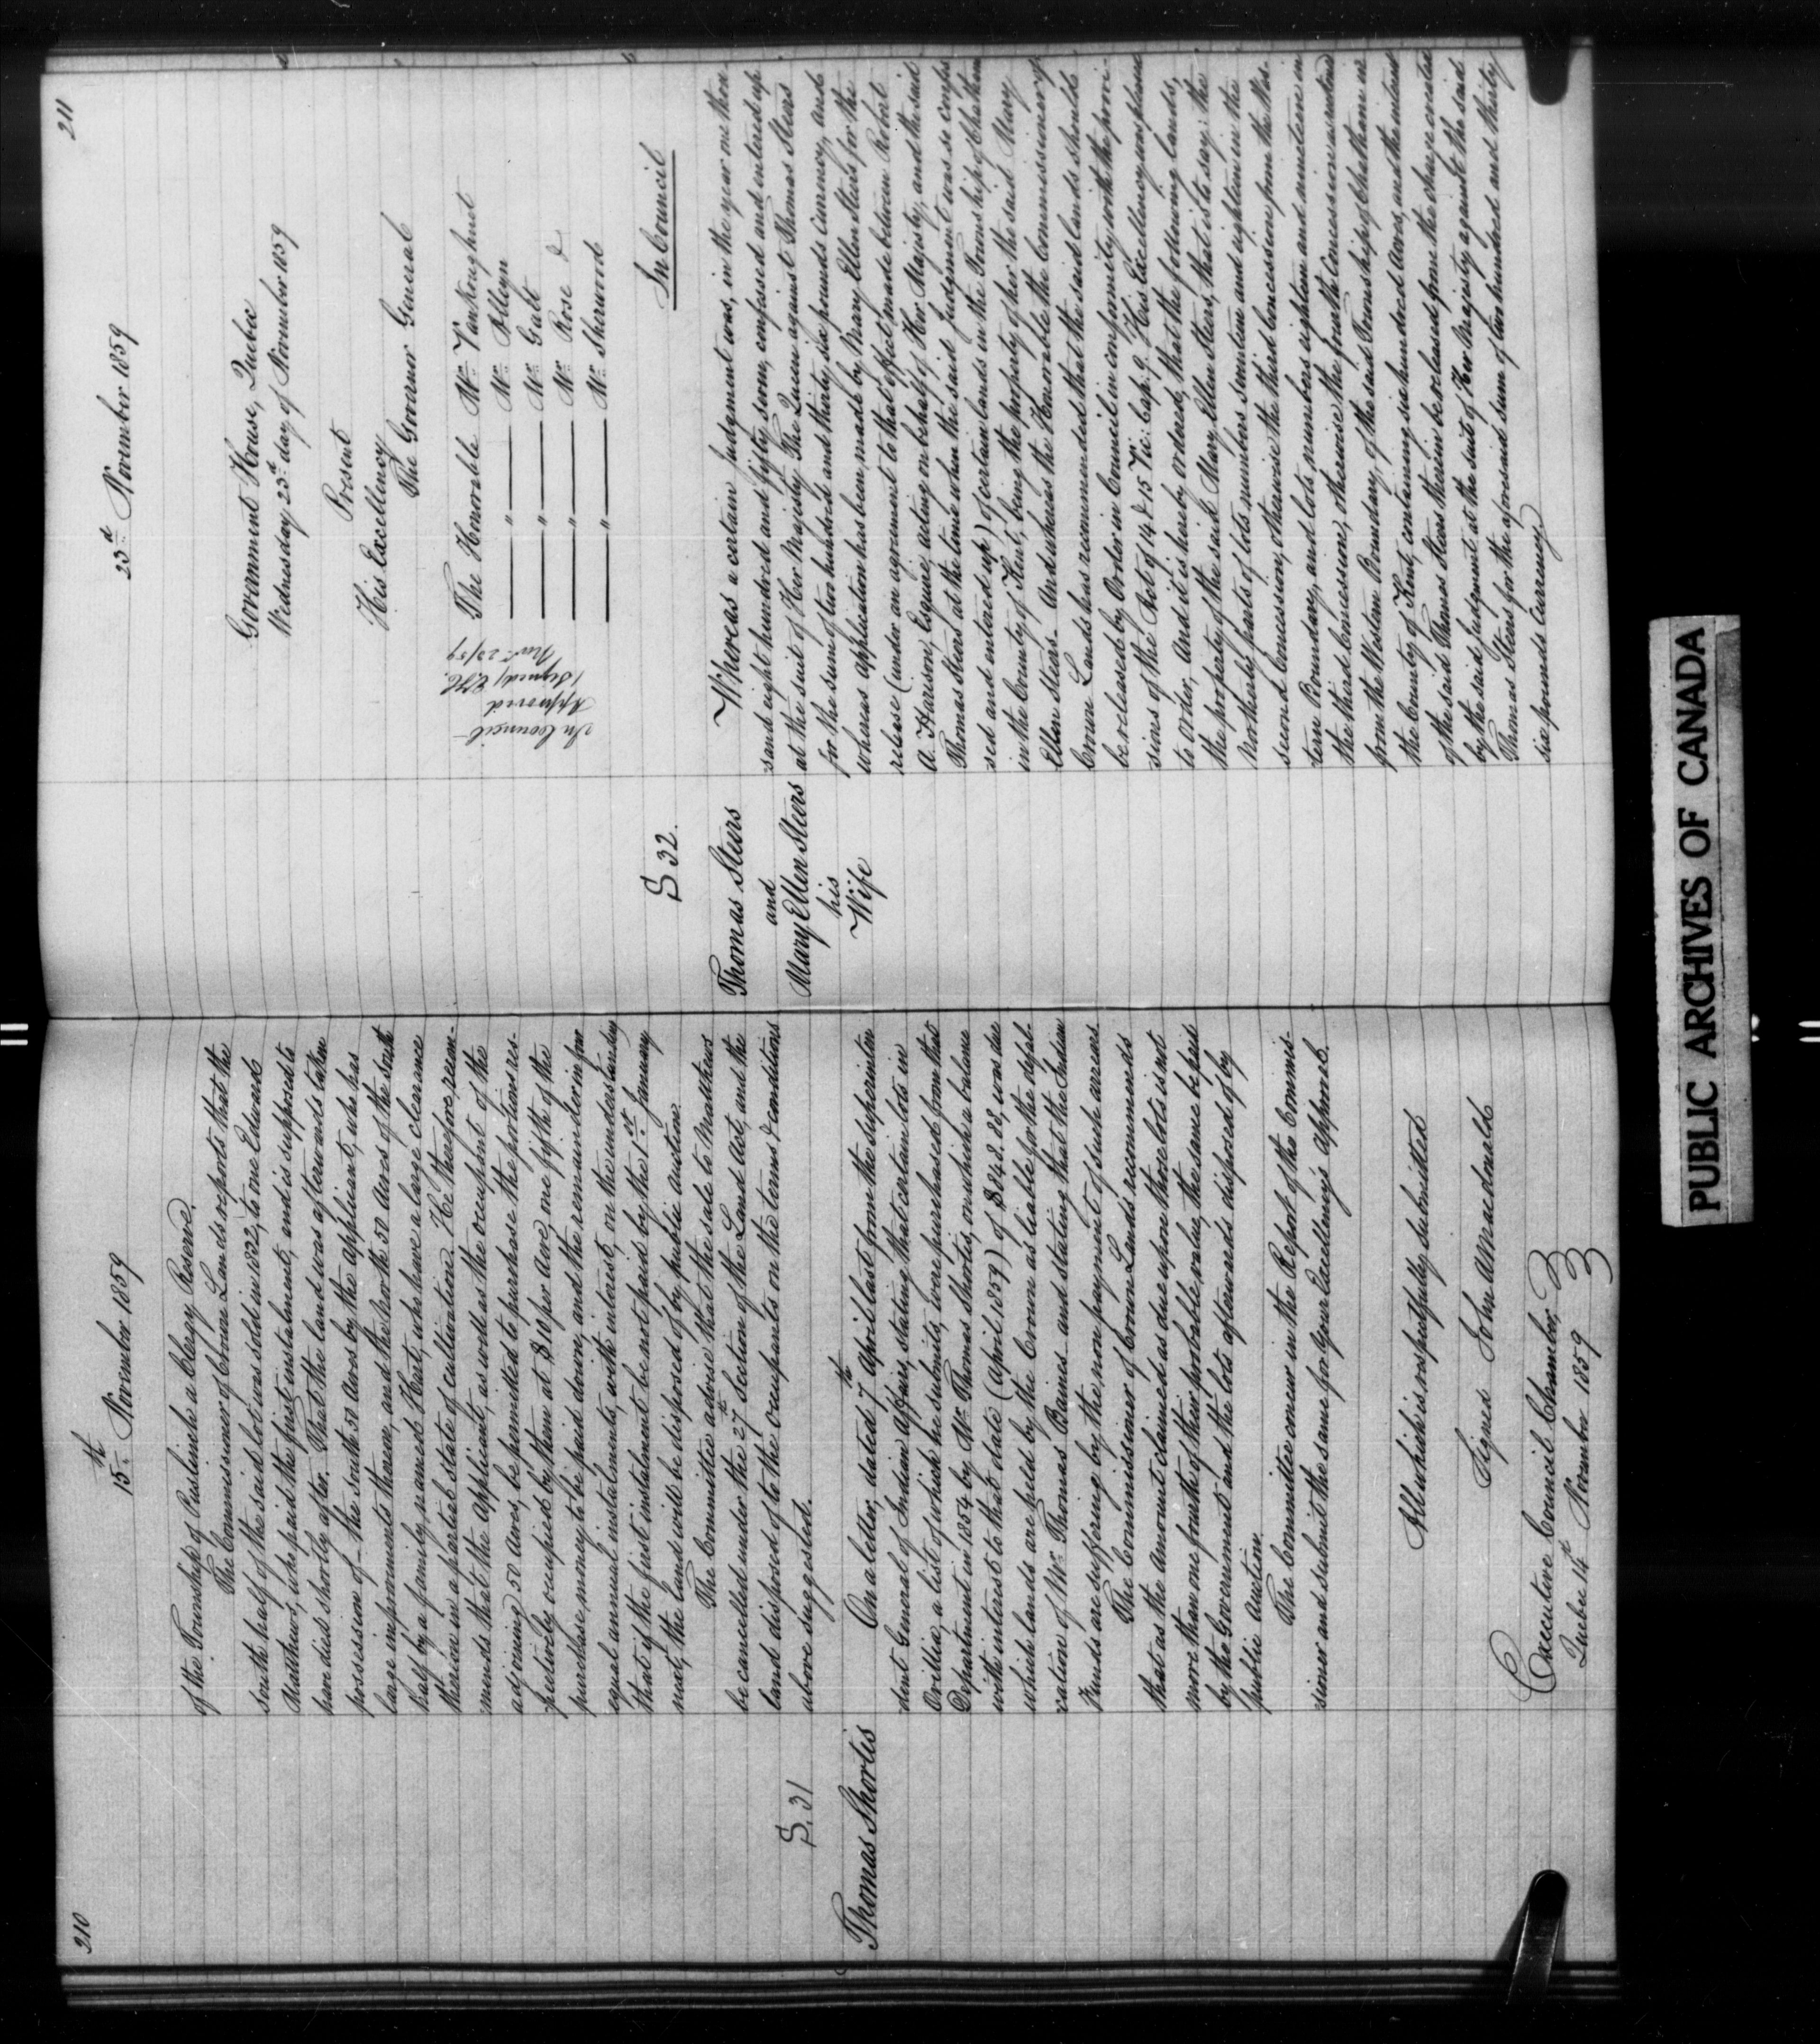 210
15th November 1859
of the Township of Puslinch a Clergy Reserve.
The Commissioner of Crown Lands reports that the
south half of the said lot was sold in 1832, to one Edward
Matthews, who paid the first instalment, and is supposed to
have died shortly after. That the land was afterwards taken
possession of – the south 50 Acres by the Applicant, who has
large improvements thereon, and the north 50 Acres of the south
half by a family named Hart, who have a large clearance
thereon in a partial state of cultivation. He therefore, recom-
mends that the Applicant, as well as the occupant of the
adjoining 50 Acres, be permitted to purchase the portions res-
pectively occupied by them at $10 per Acre, one fifth of the
purchase money to be paid down, and the remainder in four
equal annual instalments, with interest, on the understanding
that if the first instalment be not paid by the 1st January
next, the land will be disposed of by public auction.
The Committee advise that the sale to Matthews
be cancelled under the 27th Section of the Land Act, and the
land disposed of to the occupants on the terms & conditions
above suggested.
S. 31
Thomas Shortis
On a letter, dated 7th April last from the Superinten
dent General of Indian Affairs, stating that certain lots in
Orillia, a list of which he submits, were purchased from that
Department in 1854 by Mr. Thomas Shortis, on which a balance
with interest to that date (April 1859) of $2848.28, was due
which lands are held by the Crown as liable for the defal-
cation of Mr. Thomas Baines – and stating that the Indian
Funds are suffering by the non payment of such arrears
The Commissioner of Crown Lands recommends
that as the amount claimed as due upon those lots is not
more than one fourth of their probable value, the same be paid
by the Government and the lots afterwards disposed of by
public Auction.
The Committee concur in the Report of the Commis-
sioner and submit the same for Your Excellency's approval.
All which is respectfully submitted
Signed John A Macdonald
Executive Council Chamber,
Quebec 14th November 1859
211
23d November 1859
Government House, Quebec
Wednesday, 23d day of November 1859
Present
His Excellency
The Governor General
The Honorable Mr. Vankoughnet
" Mr. Alleyn
" Mr. Galt
" Mr. Rose &
" Mr. Sherwood
In Council
Approved
(signed) E.H.
Nov. 23/59
In Council
S 32.
Thomas Steers
and
Mary Ellen Steers
his
Wife
Whereas a certain Judgement was, in the year one thou-
sand eight hundred and fifty seven, confessed and entered up
at the suit of Her Majesty The Queen against Thomas Steers
for the sum of two hundred and thirty six pounds Currency, and
whereas application has been made by Mary Ellen Steers for the
release (under an agreement to that effect made between Robert
A. Harison, Esquire, acting on behalf of Her Majesty, and the said
Thomas Steers at the time when the said Judgment was so confes
sed and entered up) of certain lands in the Township of Chatham
in the County of Kent, being the property of her the said Mary
Ellen Steers – And whereas the Honorable the Commissioner of
Crown Lands has recommended that the said lands should
be released by Order in Council in conformity with the provi-
sions of the Act of 14 & 15 Vic: Cap: 9. His Excellency was pleased
to order, And it is hereby ordered, that the following lands,
the property of the said Mary Ellen Steers, that is to say: the
Northerly parts of lots numbers seventeen and eighteen in the
second Concession, otherwise the third Concession from the Wes-
tern Boundary, and lots numbers eighteen and nineteen in
the third Concession, otherwise the fourth Concession
from the Western Boundary, of the said Township of Chatham in
the County of Kent, containing six hundred Acres, and the interest
of the said Thomas Steers therein be released from the charge created
by the said Judgment at the suit of Her Majesty against the said
Thomas Steers for the aforesaid sum of two hundred and thirty
six pounds Currency
PUBLIC ARCHIVES OF CANADA